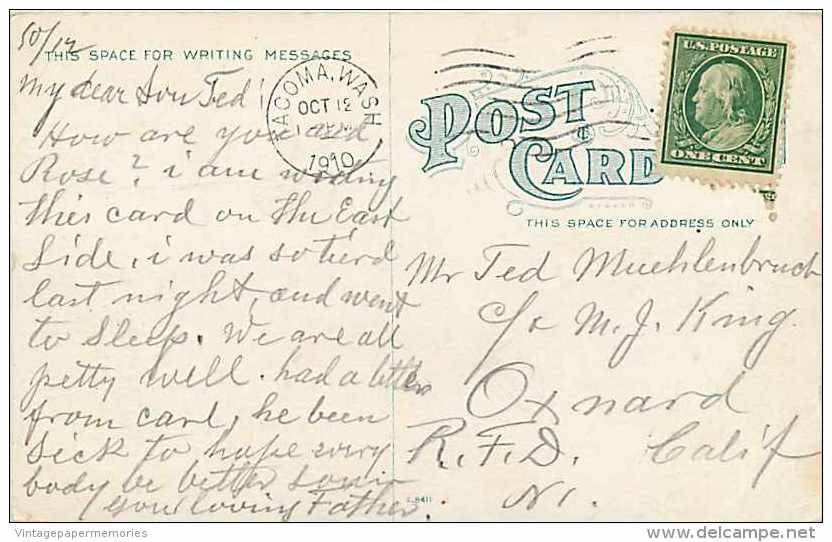 50/12
THIS SPACE FOR WRITING MESSAGES
My dear Son Ted!
How are you and
Rose? i am writing
this card on the East
Side, i was so tierd
last night, and went
to Sleep. We are all
petty well. had a letter
from carl, he been
Sick to hope every
body be better soon
your loving Father.
TACOMA, WASH
OCT 12
1910
U.S. POSTAGE
ONE CENT
POST
CARD
THIS SPACE FOR ADDRESS ONLY
Mr Ted Muehlenbruch
c/o M. J. King.
Oxnard
R. F. D. Calif
N1.
Vintagepapermemories
delcampe.net